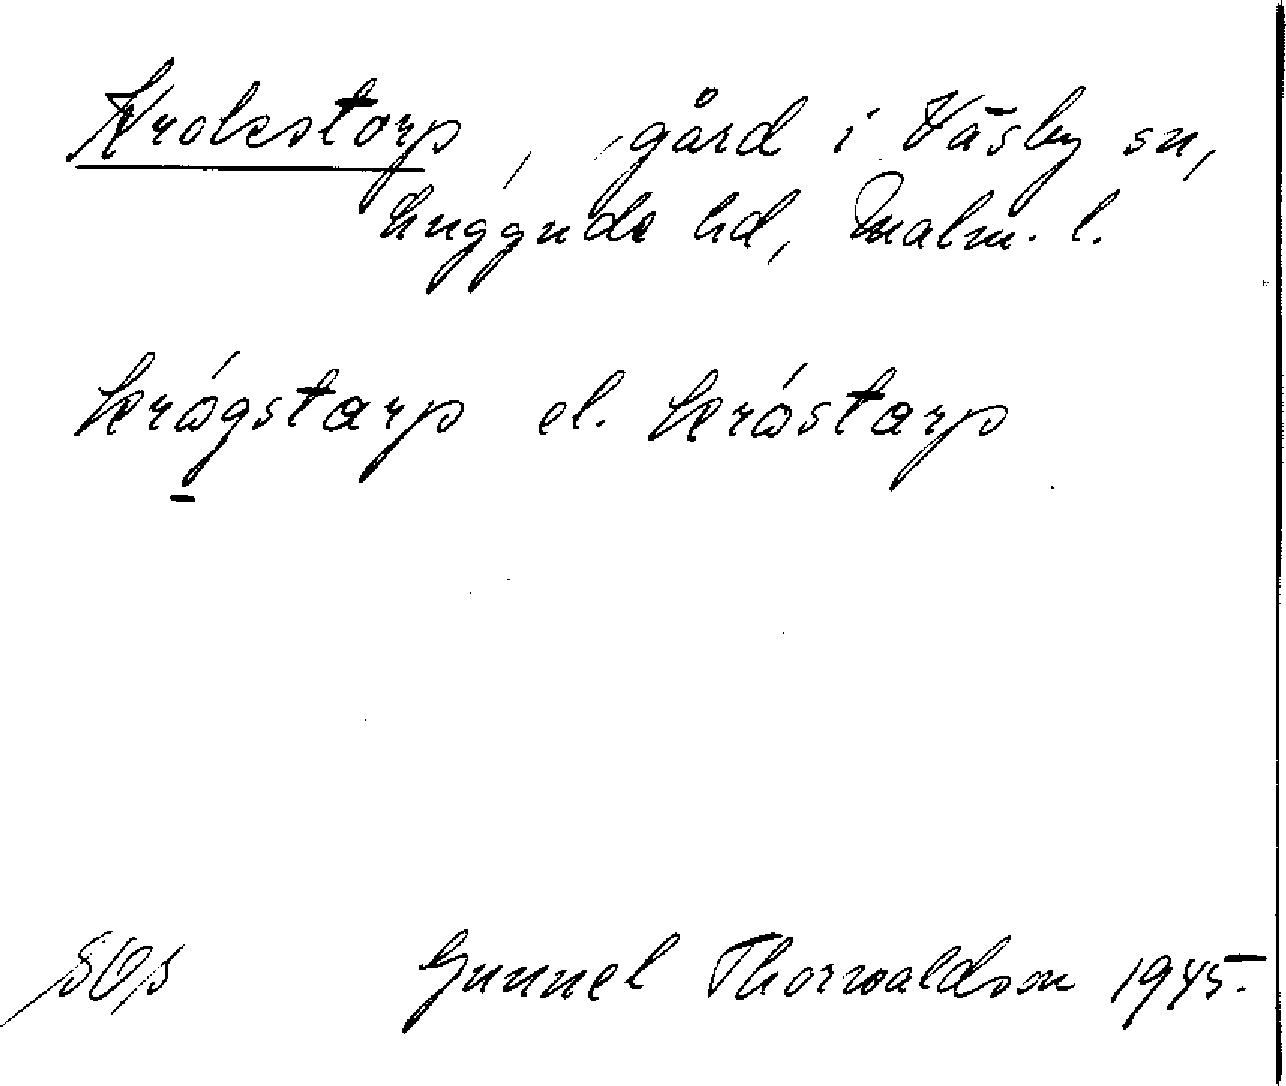 Krokstorp, gård i Väsby sn,
Luggude hd, Malm. l.
krógstarp el. króstarp
SOs Gunnel Thorwaldson 1945.